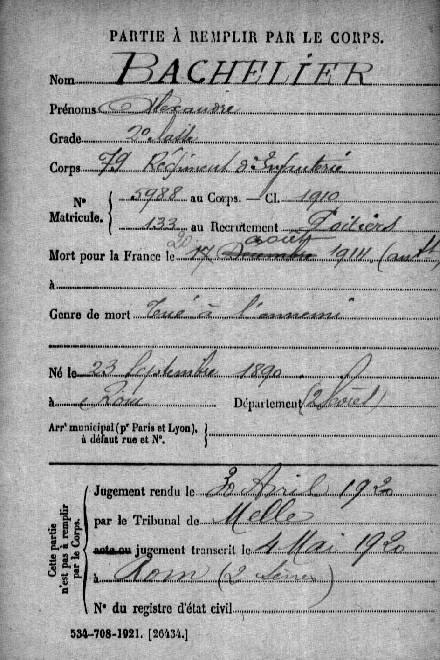 PARTIE À REMPLIR PAR LE CORPS.
Nom BACHELIER
Prénoms Alexandre
Grade 2e classe
Corps 79 Régiment d'Infanterie
N° Matricule. 5988 au Corps. — Cl. 1910
133 au Recrutement Poitiers
20 août
Mort pour la France le 17 Décembre 1914
à
Genre de mort Tué à l'ennemi
Né le 23 Septembre 1890
à Rom Département (2 Sèvres)
Arrt municipal (pr Paris et Lyon), à défaut rue et N°.
Cette partie n'est pas à remplir par le Corps.
Jugement rendu le 30 Avril 1920
par le Tribunal de Melle
acte ou jugement transcrit le 4 Mai 1920
à Rom (2 Sèvres)
N° du registre d'état civil
534-708-1921. [26434.]